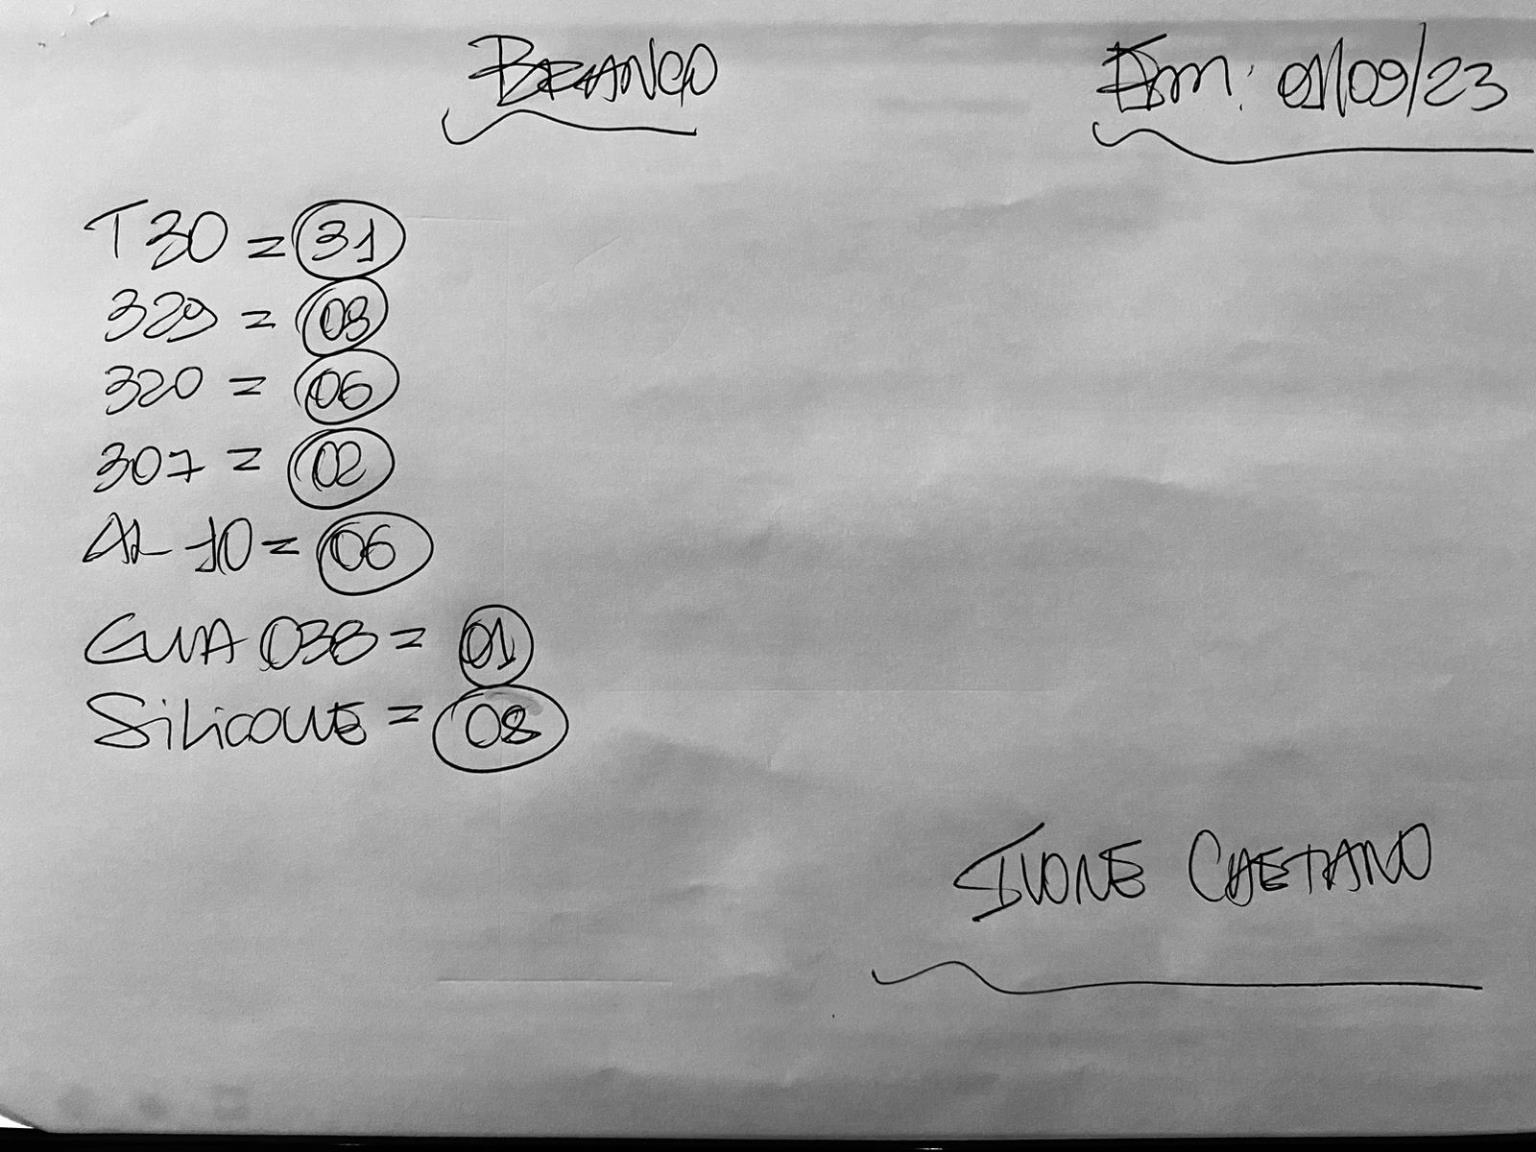 BRANCO
Em: 01/09/23
T30 = 31
329 = 03
320 = 06
307 = 02
AL-10 = 06
GUIA 038 = 01
SILICONE = 08
IVONE CAETANO